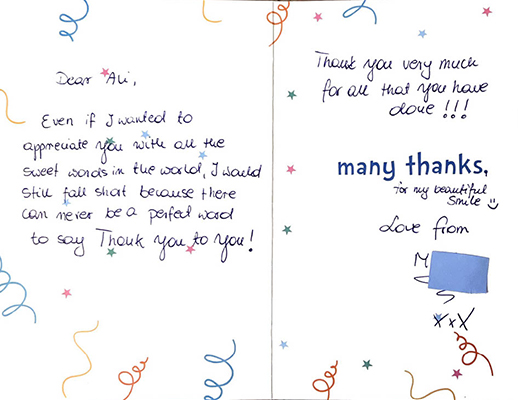 Dear Ali,
Even if I wanted to
appreciate you with all the
sweet words in the world, I would
still fall short because there
can never be a perfect word
to say Thank you to you!
Thank you very much
for all that you have
done !!!
many thanks,
for my beautiful
smile
Love from
M
S
xxx